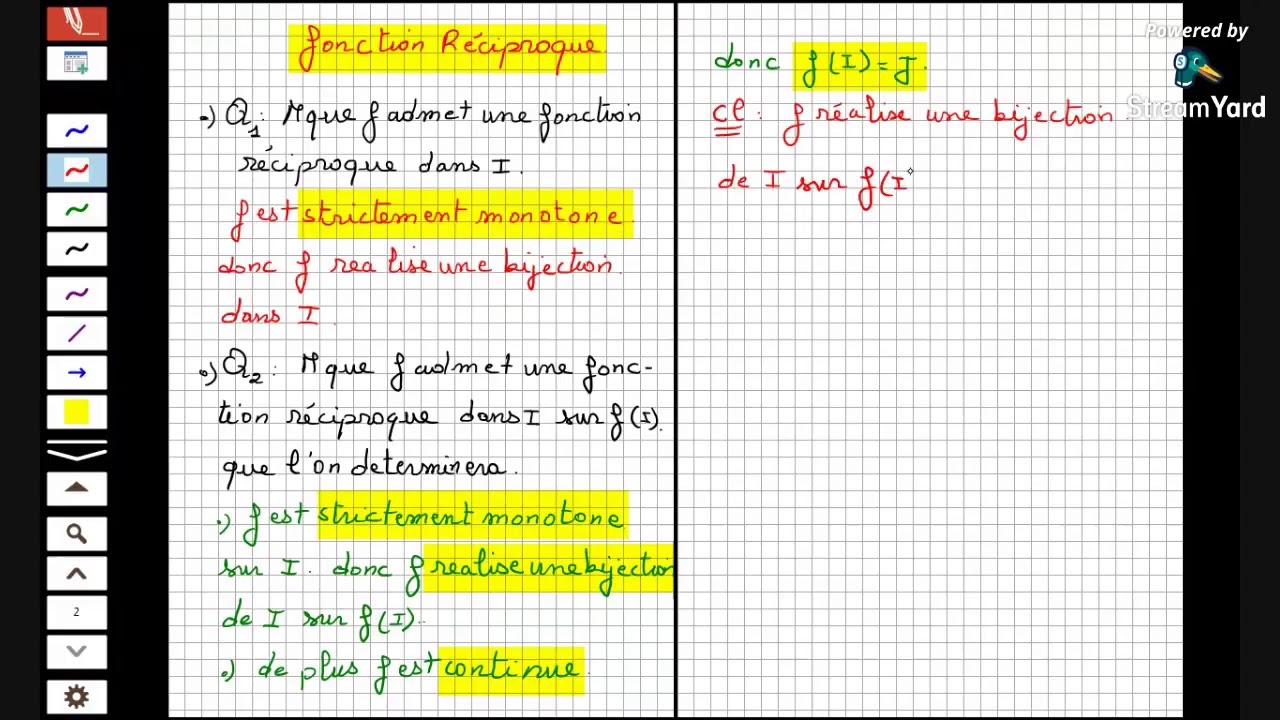 Fonction Réciproque
•) Q1: Mque f admet une fonction
réciproque dans I.
f est strictement monotone
donc f realise une bijection
dans I.
•) Q2: Mque f admet une fonc-
tion réciproque dans I sur f(I).
que l'on determinera.
•) f est strictement monotone
sur I. donc f realise une bijection
de I sur f(I).
•) de plus f est continue.
donc f(I) = J.
cl: f réalise une bijection
de I sur f(I
Powered by
StreamYard
2